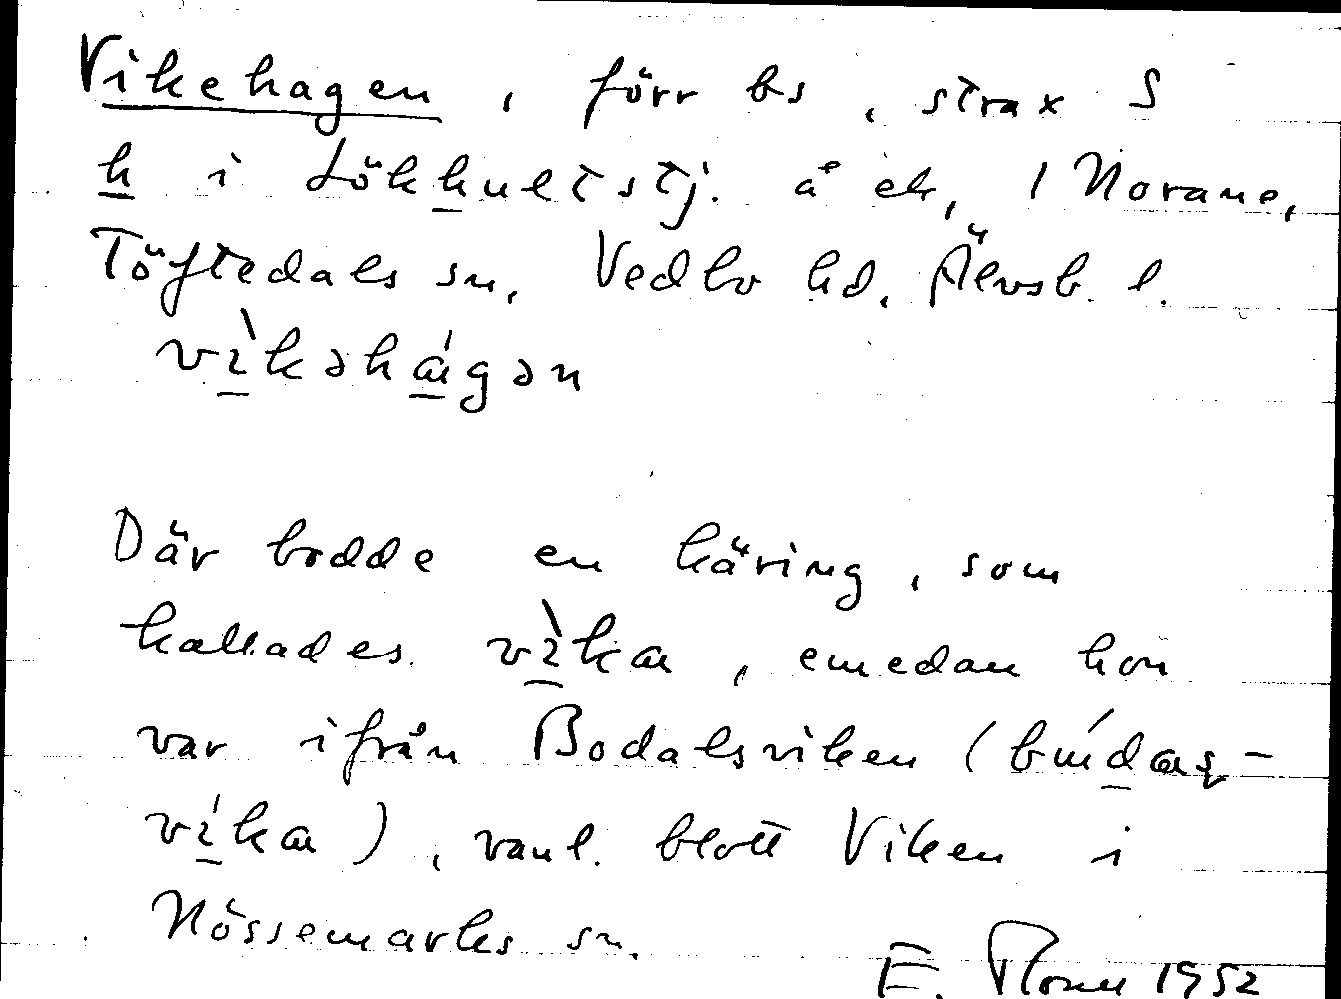 Vikehagen, förr bs, strax S
k i Lökkultstj. å ek, 1 Norane,
Töftedals sn, Vedbo hd, Älvsb. l.
vìkəhágən
Där bodde en käring, som
kallades vìka, emedan hon
var ifrån Bodalsviken (búdas-
víka), vanl. blott Viken i
Nössemarks sn.
E. 1952